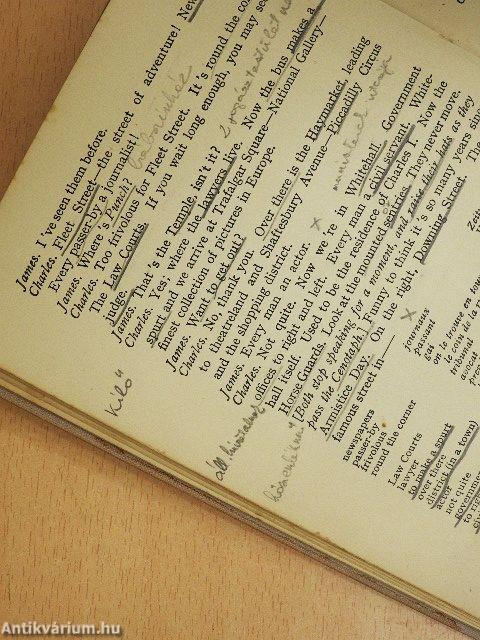 James. I've seen them before.
Charles. Fleet Street—the street of adventure!
Every passer-by a journalist!
James. Where's Punch?
Charles. Too frivolous for Fleet Street. It's round the
The Law Courts. If you wait long enough, you may see
judge.
James. That's the Temple, isn't it?
Charles. Yes, where the lawyers live. Now the bus makes a
spurt and we arrive at Trafalgar Square—National Gallery—
finest collection of pictures in Europe.
James. Want to get out?
Charles. No, thank you. Over there is the Haymarket, leading
to theatreland and Shaftesbury Avenue—Piccadilly Circus
and the shopping district.
James. Every man an actor.
Charles. Not quite. Now we're in Whitehall. Government
offices to right and left. Every man a civil servant. White-
hall itself. Used to be the residence of Charles I. Now the
Horse Guards. Look at the mounted sentries. They never move.
[Both stop speaking for a moment, and raise their hats as they
pass the Cenotaph.] Funny to think it's so many years since
Armistice Day. On the right, Downing Street. The
famous street in—
Kiló"
newspapers
passer-by
frivolous
round the corner
Law Courts
lawyer
to make a spurt
over there
district (in a town)
actor
not quite
government
to right
journaux
passant
gai
on le trouve en
le coin de la
tribunal
avocat
Antikvárium.hu